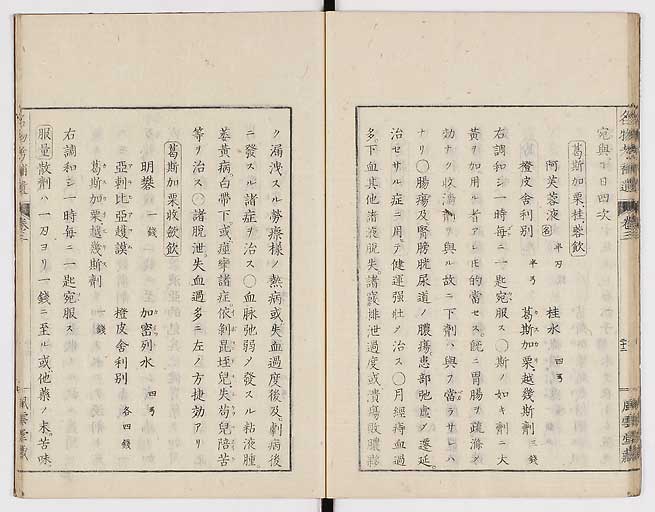 宛與一日四次
葛斯加栗桂蓉飲
阿芙蓉液 半刃 桂水 四弓
橙皮舎利別 半弓 葛斯加栗越幾斯劑 三錢
右調和シ一時毎ニ一匙宛服ス〇斯ノ如キ劑ニ大
黄ヲ加用ル者アレ𪜈的當セス。既ニ胃腸ヲ疏滌シ
効ナク收濇劑ヲ與ル故ニ下劑ハ與フ當ラサレハ
ナリ〇腸瘍及腎膀胱尿道ノ膿瘍患部弛虚シ遷延
治セサル症ニ用テ健運强壯ノ治ス〇月經痔血過
多下血其他諸液脱失。諸竅排泄過度或潰瘍敗膿
ク漏洩スル勞瘵樣ノ熱病或失血過度後及劇病後
ニ發スル諸症ヲ治ス〇血脉弛弱ノ發スル粘液腫
萎黄病白帶下或痙攣諸症。
等ヲ治ス〇諸脱泄失血過多ニ左ノ方捷効アリ
葛斯加栗收斂飲
明礬 一錢 加密列水 四弓
亞剌比亞護謨 橙皮舎利別 各四錢
葛斯加栗越幾斯劑 一錢
右調和シ一時毎ニ一匙宛服ス
服量散劑ハ一刃ヨリ一錢ニ至ル或他藥ノ末苦味